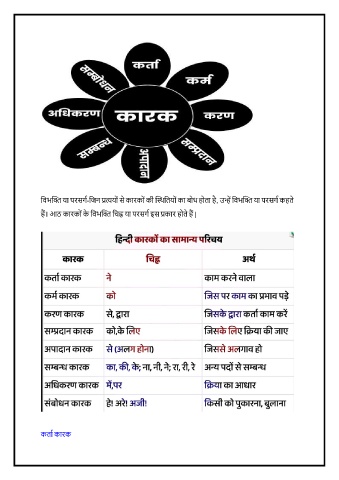 कर्ता
कर्म
करण
सम्प्रदान
अपादान
सम्बन्ध
अधिकरण
सम्बोधन
कारक
विभक्ति या परसर्ग-जिन प्रत्ययों से कारकों की स्थितियों का बोध होता है, उन्हें विभक्ति या परसर्ग कहते
हैं। आठ कारकों के विभक्ति चिह्न या परसर्ग इस प्रकार होते हैं|
हिन्दी कारकों का सामान्य परिचय
कारक चिह्न अर्थ
कर्ता कारक ने काम करने वाला
कर्म कारक को जिस पर काम का प्रभाव पड़े
करण कारक से, द्वारा जिसके द्वारा कर्ता काम करें
सम्प्रदान कारक को,के लिए जिसके लिए क्रिया की जाए
अपादान कारक से (अलग होना) जिससे अलगाव हो
सम्बन्ध कारक का, की, के; ना, नी, ने; रा, री, रे अन्य पदों से सम्बन्ध
अधिकरण कारक में,पर क्रिया का आधार
संबोधन कारक हे! अरे! अजी! किसी को पुकारना, बुलाना
कर्ता कारक